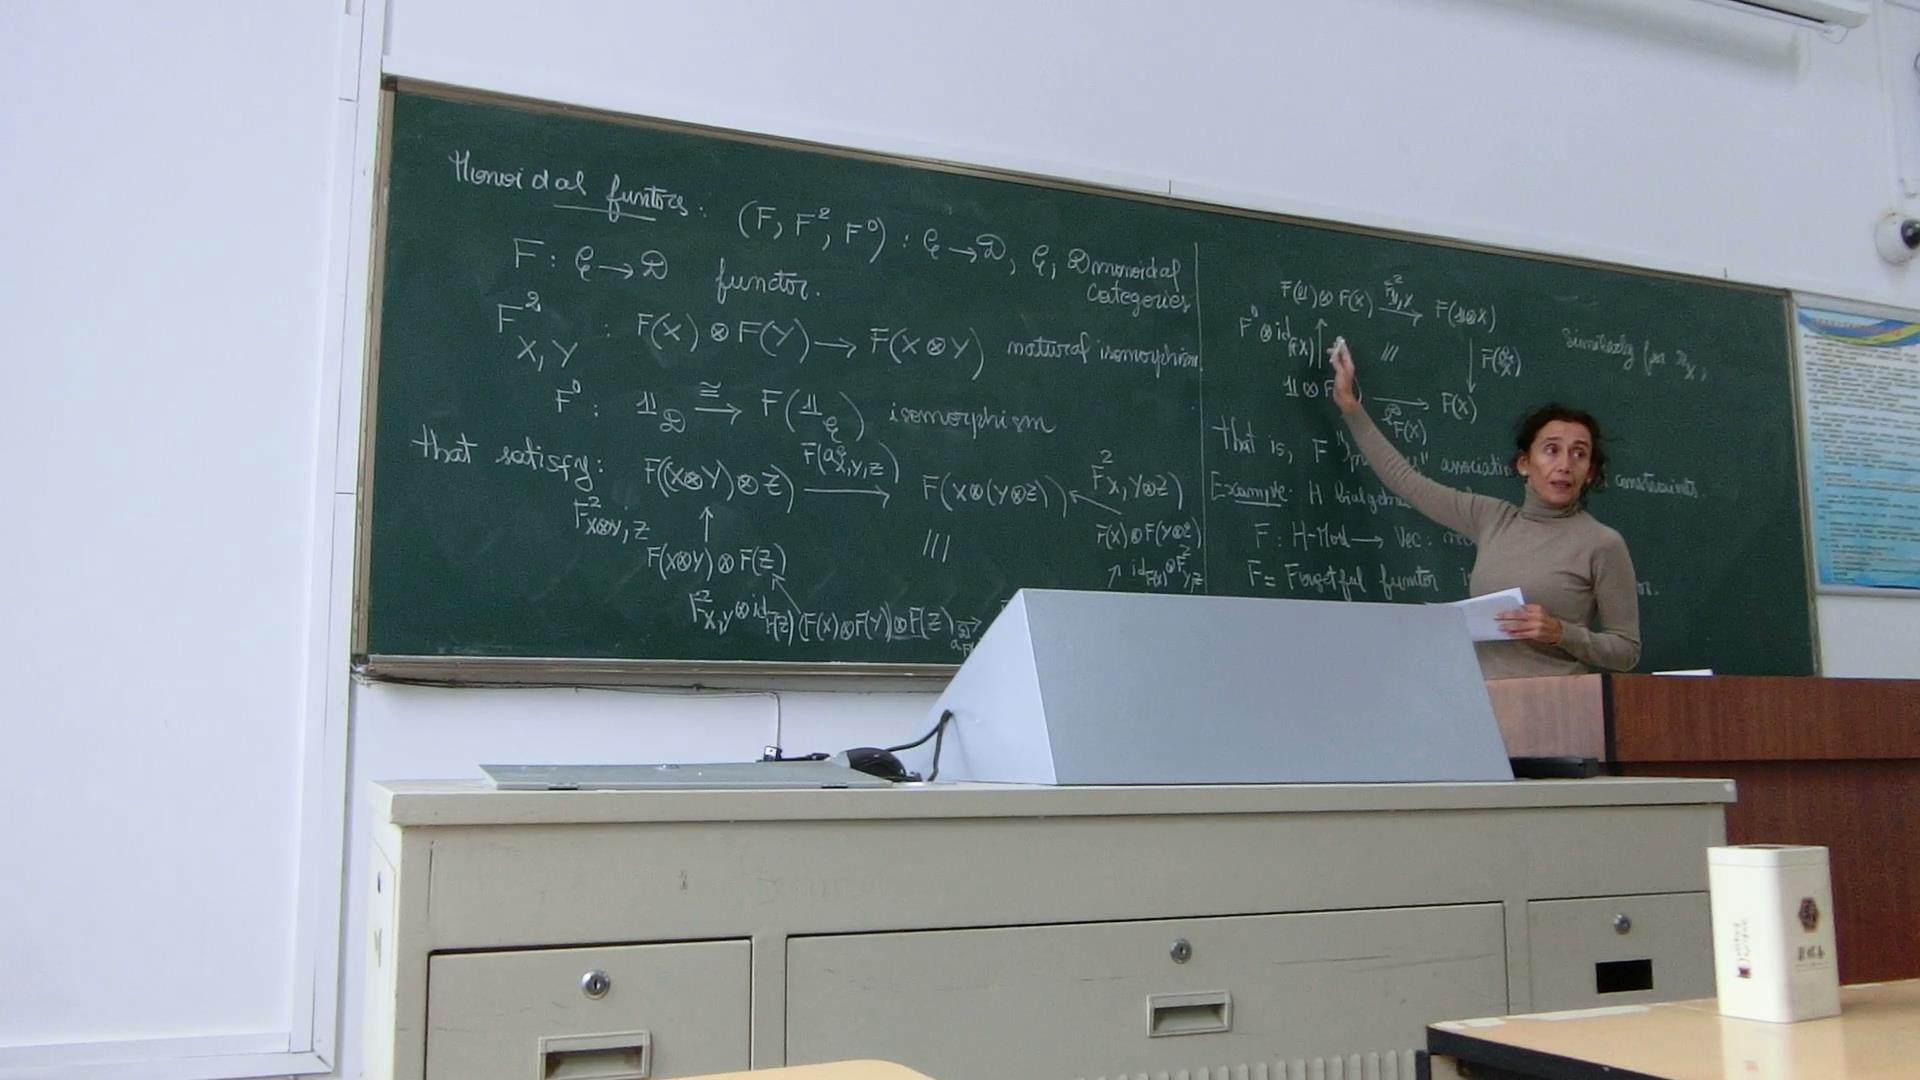 Monoidal funtors: (F, F², F⁰) : 𝒞 → 𝒟, 𝒞, 𝒟 monoidal categories
F : 𝒞 → 𝒟 functor.
F²_{X,Y} : F(X) ⊗ F(Y) → F(X ⊗ Y) natural isomorphism
F⁰ : 𝟙_𝒟 ≅→ F(𝟙_𝒞) isomorphism
that satisfy: F((X⊗Y)⊗Z) F(a^𝒞_{X,Y,Z}) → F(X⊗(Y⊗Z)) ← F²_{X,Y⊗Z}
F²_{X⊗Y,Z} ↑ ///
F(X⊗Y) ⊗ F(Z) F(X) ⊗ F(Y⊗Z)
F²_{X,Y} ⊗ id_{F(Z)} ↖ (F(X)⊗F(Y))⊗F(Z) → ↗ id_{F(X)} ⊗ F²_{Y,Z}
F(𝟙) ⊗ F(X) F²_{𝟙,X} → F(𝟙⊗X)
F⁰ ⊗ id_{F(X)} ↑ /// ↓ Similarly for r_X,
𝟙 ⊗ → F(X)
that is, F constraints.
Example: H
F : H-Mod → Vec :
F = Forgetful funtor